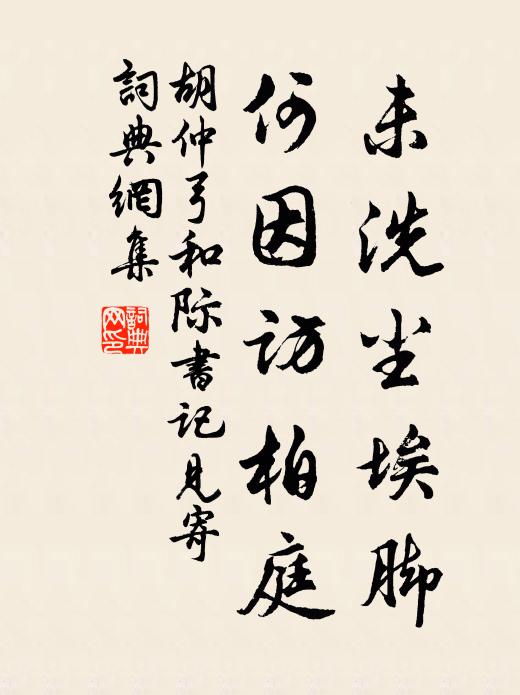 未洗尘埃脚
何因访柏庭
胡仲弓和际書记見寄
詞典網集
詞典
网印